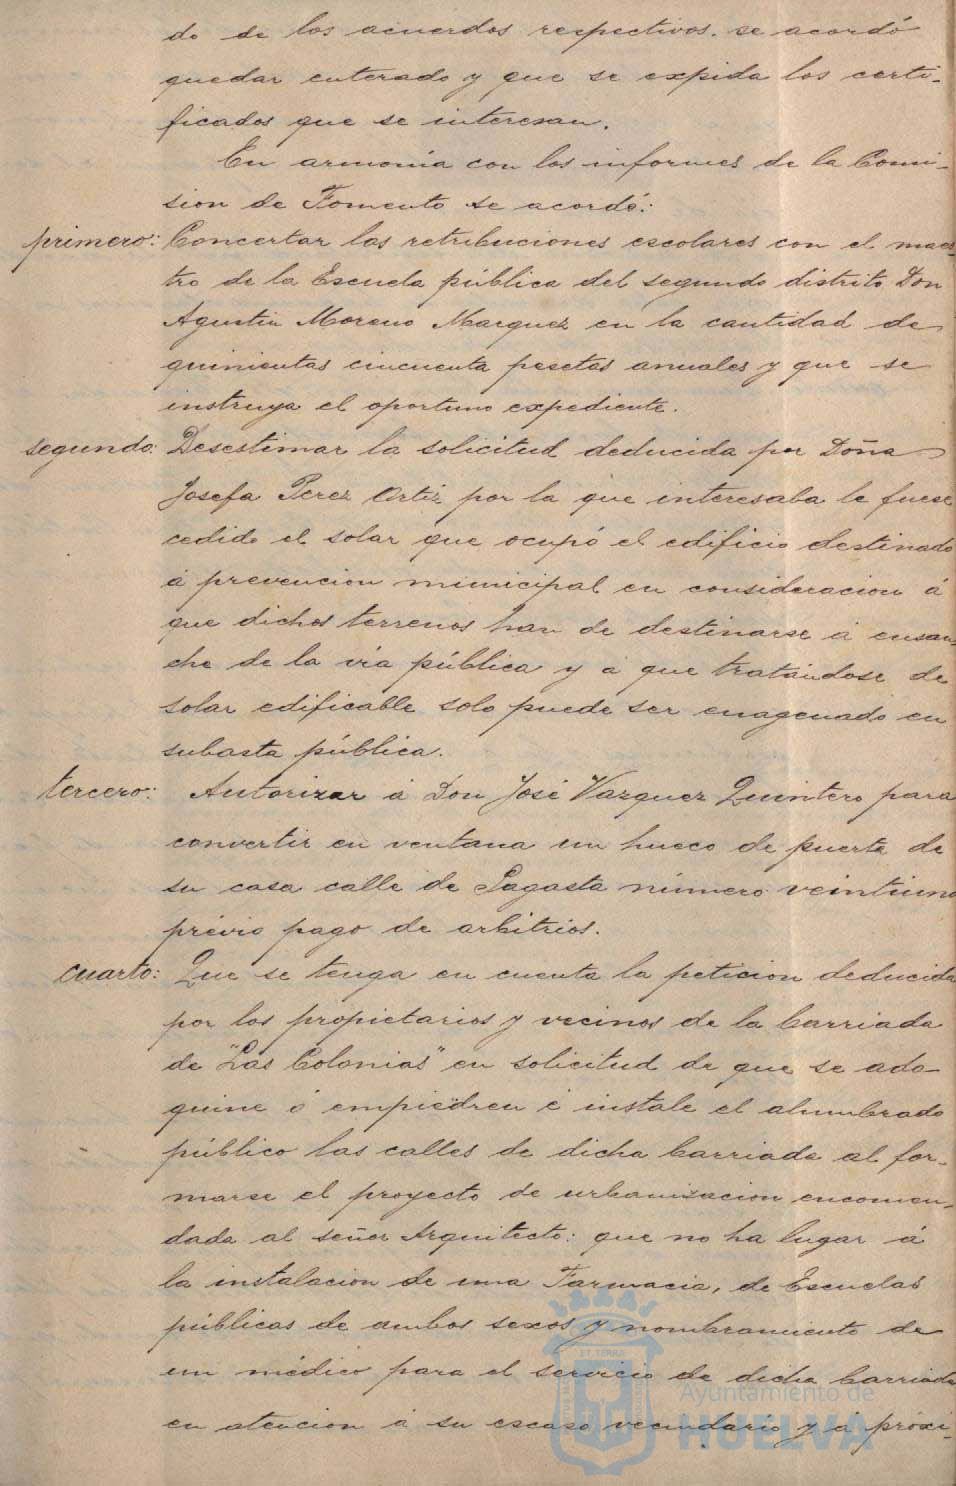 do de los acuerdos respectivos. se acordó
quedar enterado y que se expida los certi-
ficados que se interesan.
En armonía con los informes de la Comi-
sion de Fomento se acordó:
primero: Concertar las retribuciones escolares con el maes-
tro de la Escuela pública del segundo distrito Don
Agustin Moreno Marquez en la cantidad de
quinientas cincuenta pesetas anuales y que se
instruya el oportuno expediente.
segundo: Desestimar la solicitud deducida por Doña
Josefa Perez Ortiz por la que interesaba le fuese
cedido el solar que ocupó el edificio destinado
á prevencion municipal en consideracion á
que dichos terrenos han de destinarse á ensan-
che de la vía pública y á que tratándose de
solar edificable solo puede ser enagenado en
subasta pública.
tercero: Autorizar á Don José Vazquez Quintero para
convertir en ventana un hueco de puerta de
su casa calle de Sagasta número veintiuno
prévio pago de arbitrios.
cuarto: Que se tenga en cuenta la peticion deducida
por los propietarios y vecinos de la barriada
de "Las Colonias" en solicitud de que se ado-
quine ó empiedren é instale el alumbrado
público las calles de dicha barriada al for-
marse el proyecto de urbanizacion encomen-
dada al señor Arquitecto: que no ha lugar á
la instalacion de una Farmacia, de Escuelas
públicas de ambos sexos y nombramiento de
un médico para el servicio de dicha barriada
en atencion á su escaso vecindario y á próxi-
Ayuntamiento de
HUELVA